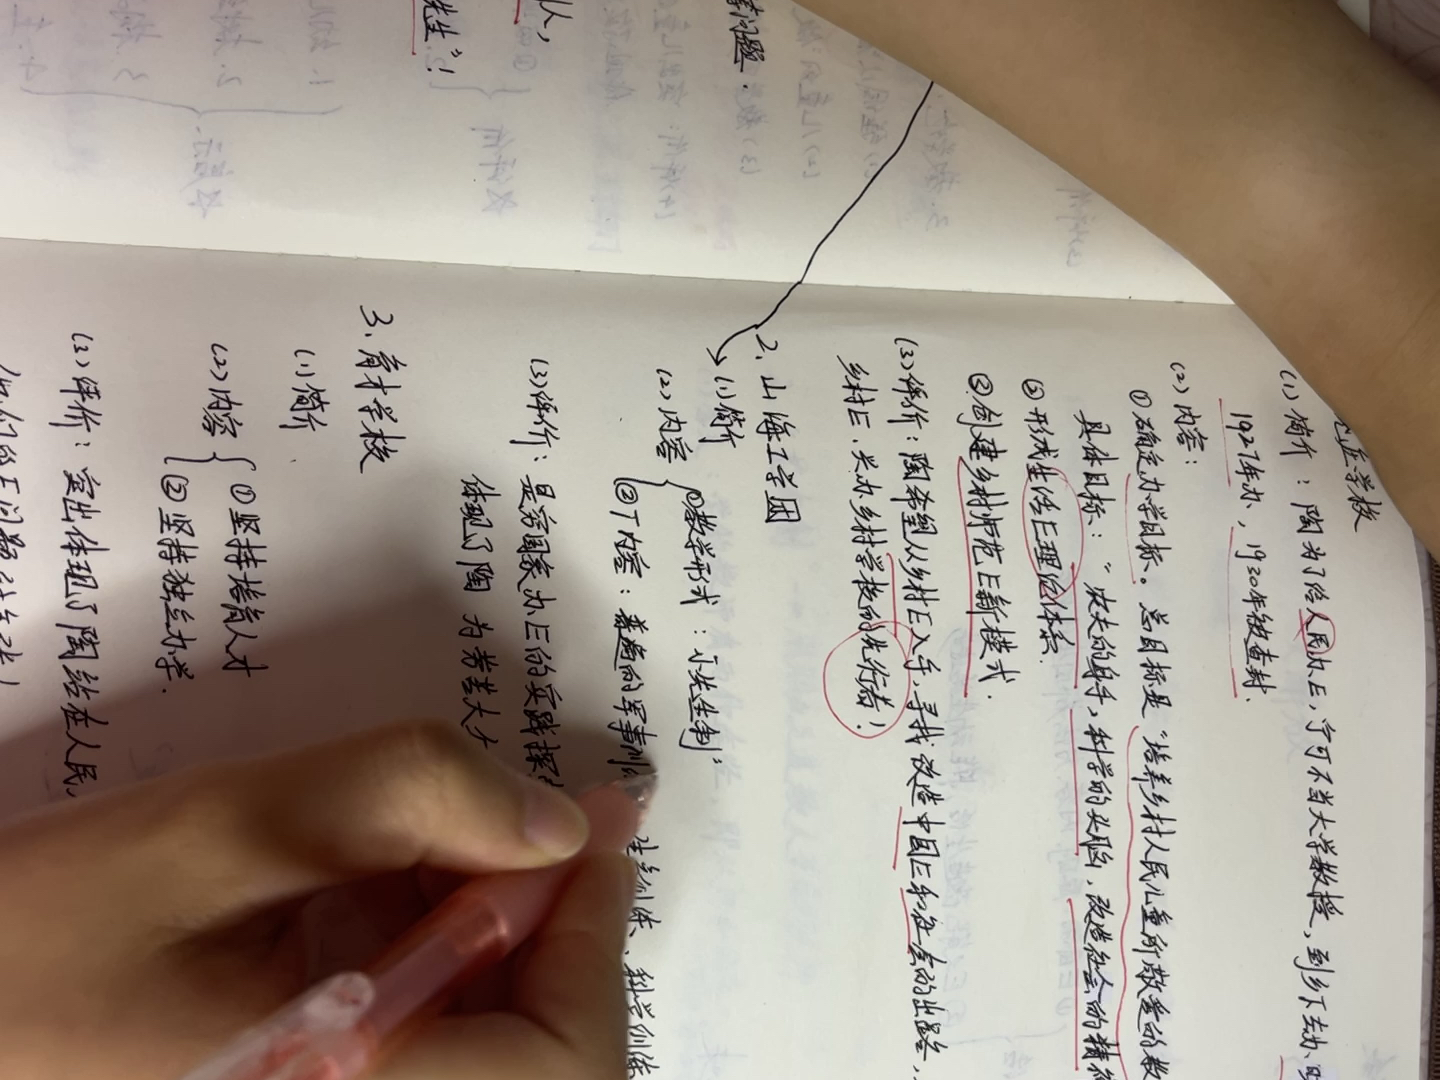 人,
先生”!
问题.
学校
(1) 简介: 陶为了给人民办E, 宁可不当大学教授, 到乡下去办
1927年办, 1930年被查封.
(2) 内容:
①确定办学目标。总目标是“培养乡村人民儿童所敬爱的
具体目标: “农夫的身手, 科学的头脑, 改造社会的精
②形成生活E理论体系.
③创建乡村师范E新模式.
(3) 评价: 陶希望从乡村E入手, 寻找改造中国E和社会的出路,
乡村E、兴办乡村学校的先行者!
2. 山海工学团
(1) 简介
(2) 内容
①教学形式: 小先生制;
②T内容: 普遍的军事训 生产训练、科学训练
(3) 评价: 是穷国家办E的实践探
体现了陶 为劳苦大
3. 育才学校
(1) 简介
(2) 内容
①坚持培育人才
②坚持独立办学.
(3) 评价: 突出体现了陶站在人民